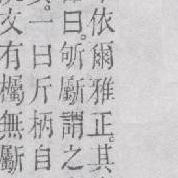 依爾雅正。其
曰。斪斸謂之
。一曰斤柄自
文有欘無斸